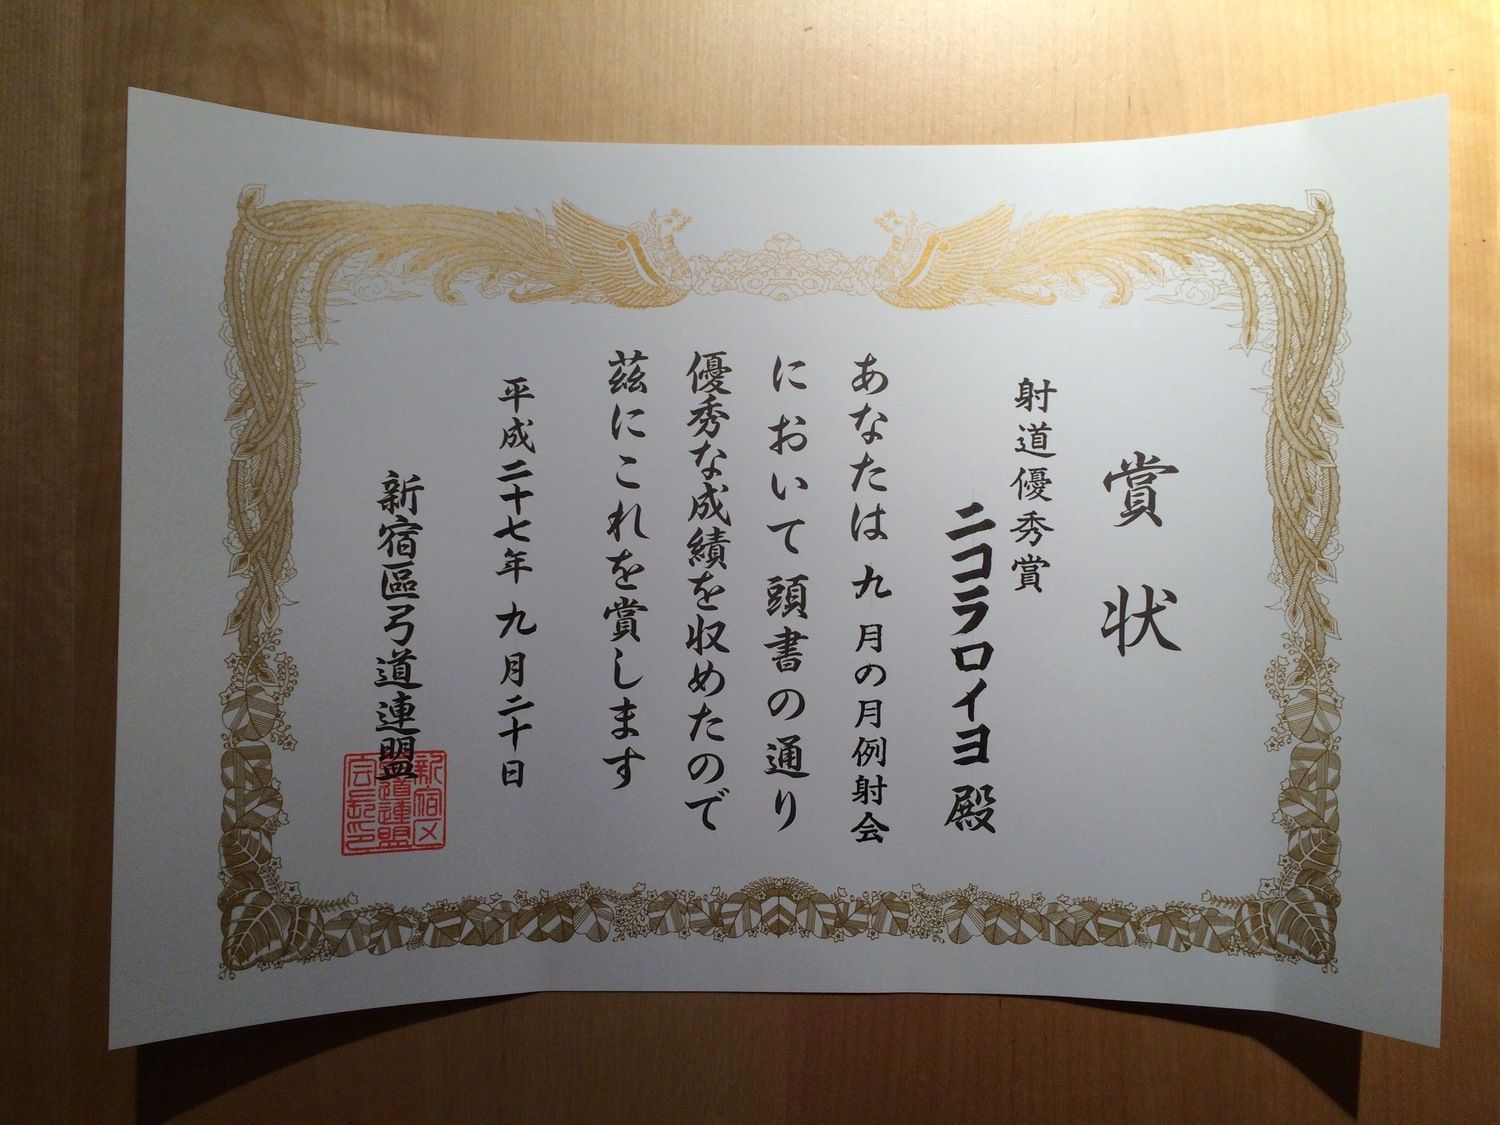 賞状
射道優秀賞
ニコラロイヨ殿
あなたは九月の月例射会
において頭書の通り
優秀な成績を収めたので
茲にこれを賞します
平成二十七年九月二十日
新宿區弓道連盟
新宿区弓道連盟会長印